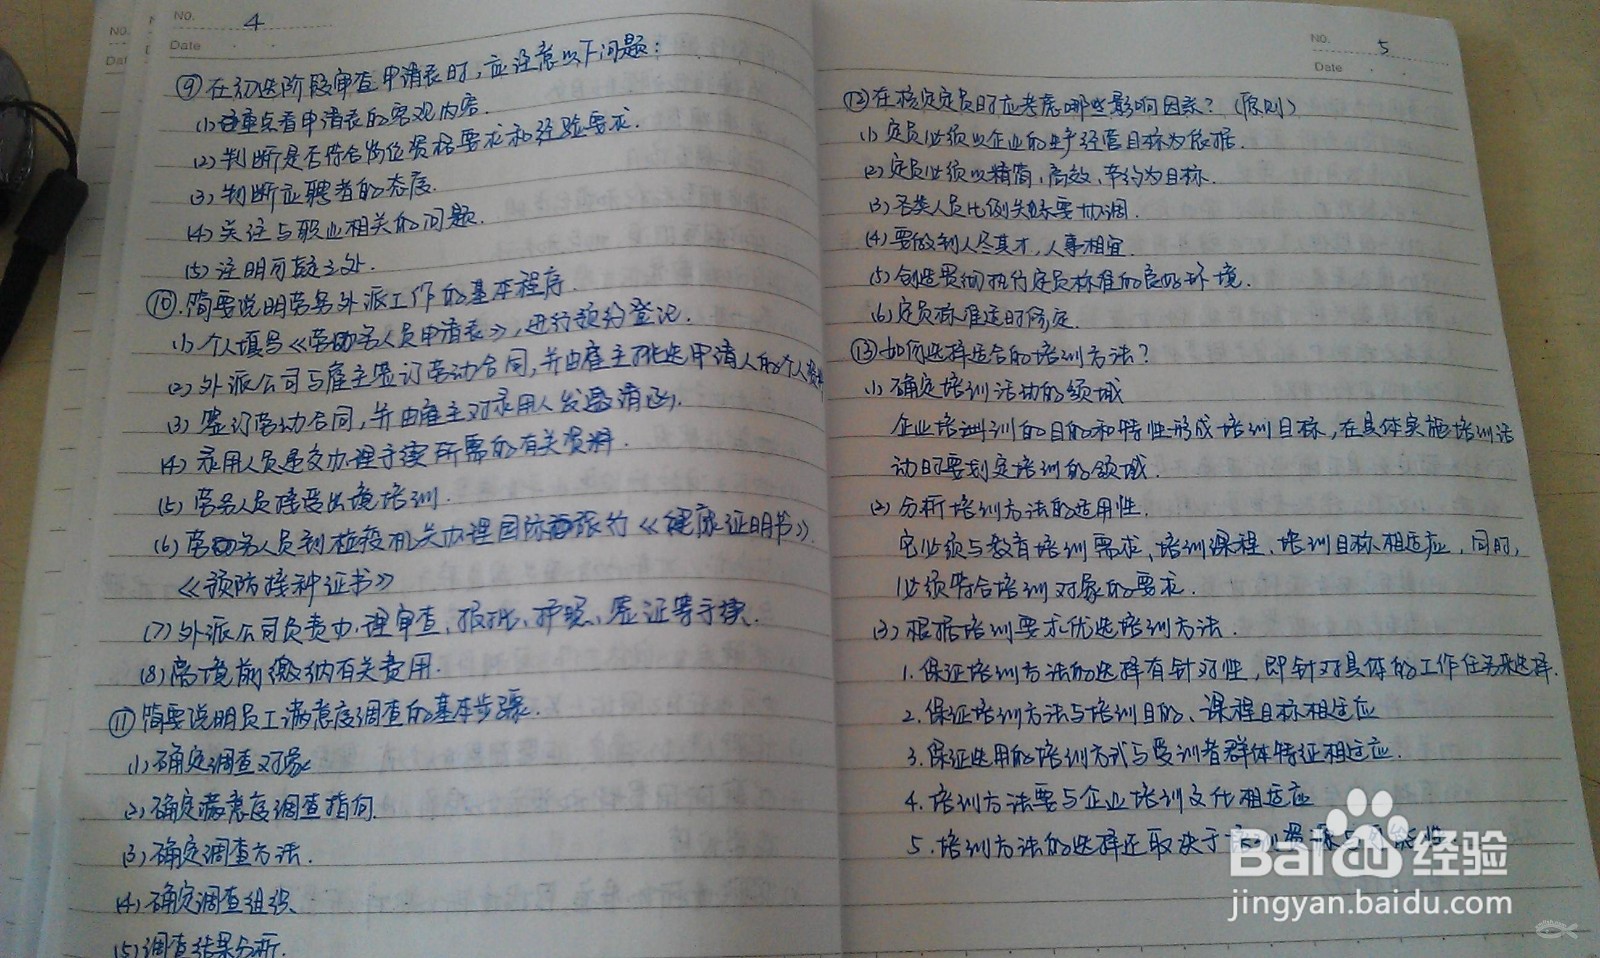 No. 4
Date
⑨在初选阶段审查申请表时,应注意以下问题:
(1)重点看申请表的客观内容.
(2)判断是否符合岗位资格要求和经验要求.
(3)判断应聘者的态度.
(4)关注与职业相关的问题.
(5)注明可疑之处.
⑩.简要说明劳务外派工作的基本程序.
(1)个人填写《劳务人员申请表》,进行预约登记.
(2)外派公司与雇主签订劳动合同,并由雇主挑选申请人的个人资料
(3)签订劳动合同,并由雇主对录用人发邀请函.
(4)录用人员递交办理手续所需的有关资料.
(5)劳务人员接受出境培训.
(6)劳务人员到检疫机关办理国际旅行《健康证明书》.
《预防接种证书》
(7)外派公司负责办理审查、报批、护照、签证等手续.
(8)离境前缴纳有关费用.
⑪简要说明员工满意度调查的基本步骤.
(1)确定调查对象
(2)确定满意度调查指向.
(3)确定调查方法.
(4)确定调查组织
(5)调查结果分析.
No. 5
Date
⑫在核定定员时应考虑哪些影响因素?(原则)
(1)定员必须以企业的生产经营目标为依据.
(2)定员必须以精简、高效、节约为目标.
(3)各类人员比例关系要协调.
(4)要做到人尽其才,人事相宜.
(5)创造贯彻执行定员标准的良好环境.
(6)定员标准适时修定.
⑬如何选择适合的培训方法?
(1)确定培训活动的领域
企业培训的目的和特性形成培训目标,在具体实施培训活
动时要划定培训的领域.
(2)分析培训方法的适用性.
它必须与教育培训需求、培训课程、培训目标相适应,同时,
必须符合培训对象的要求.
(3)根据培训要求优选培训方法.
1.保证培训方法的选择有针对性,即针对具体的工作任务来选择.
2.保证培训方法与培训目的、课程目标相适应
3.保证选用的培训方式与受训者群体特征相适应.
4.培训方法要与企业培训文化相适应
5.培训方法的选择还取决于培训资源与可能性
Baidu经验
jingyan.baidu.com